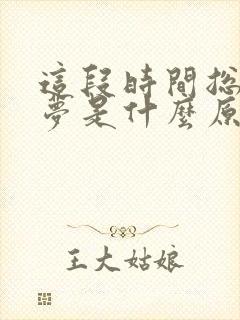 這段時間總
夢是什麼原
王大姑娘